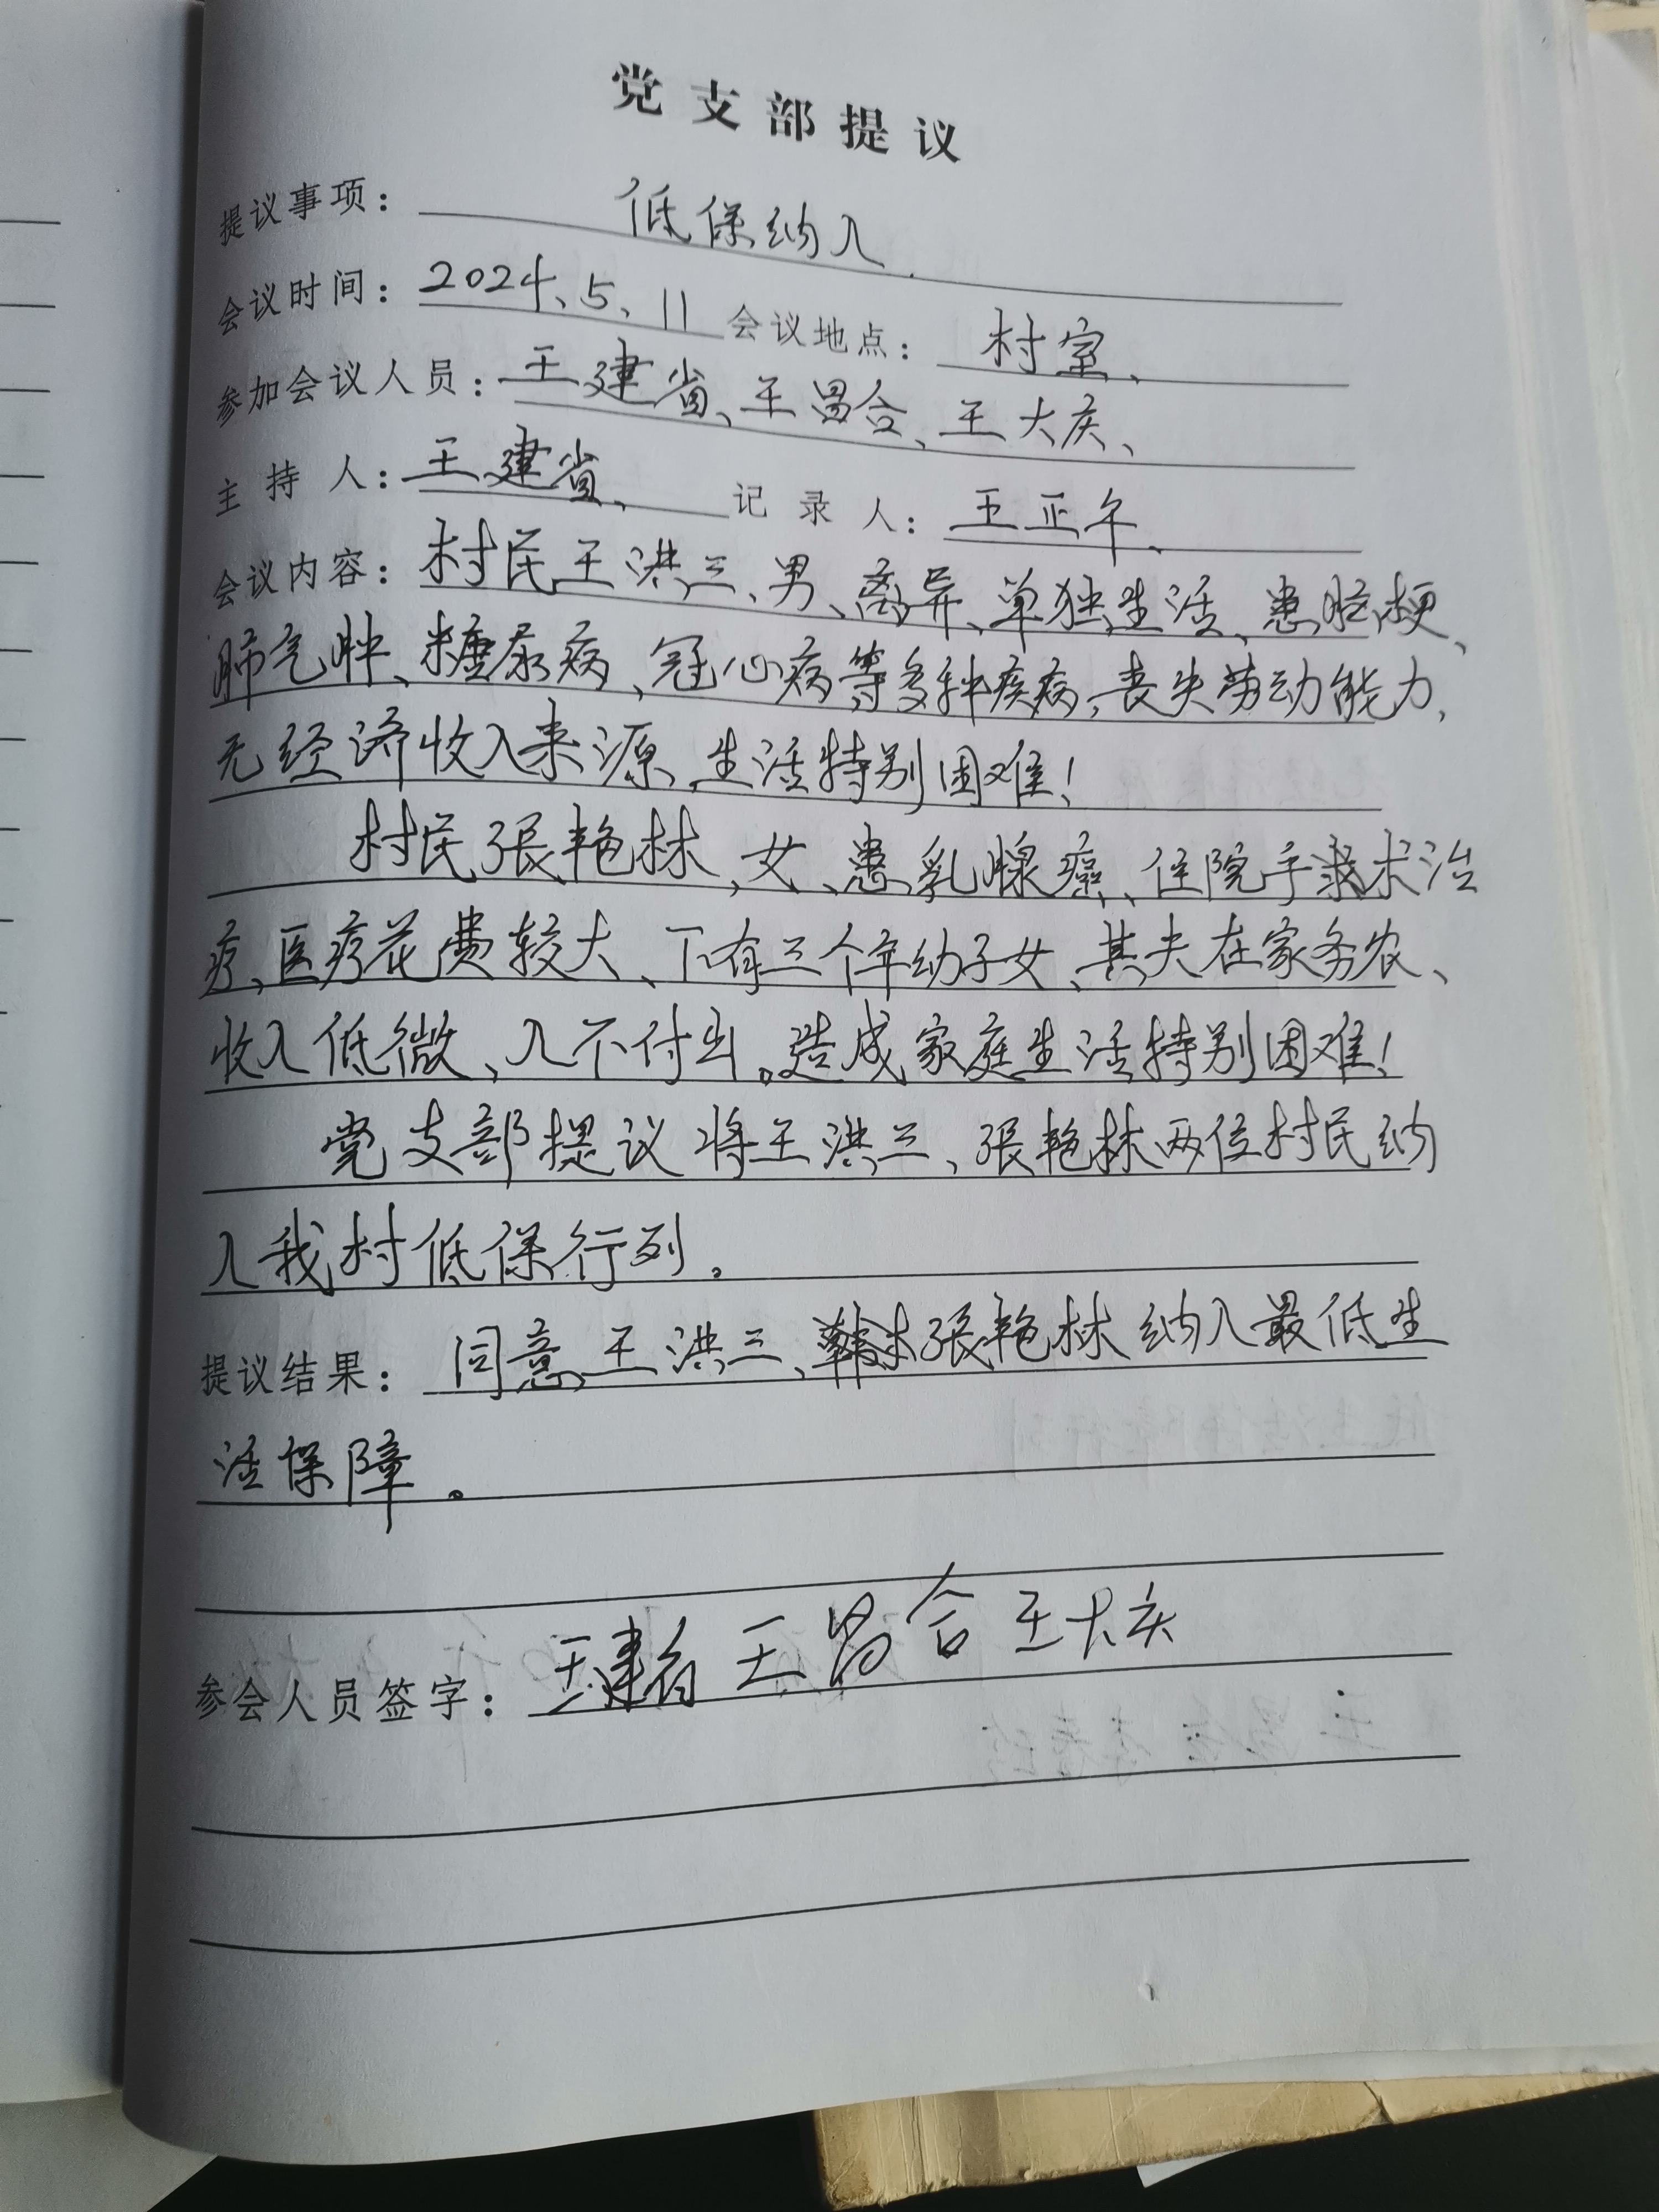 党支部提议
提议事项：低保纳入.
会议时间：2024、5、11 会议地点：村室、
参加会议人员：王建省、王昌合、王大庆、
主持人：王建省、 记录人：王正午、
会议内容：村民王洪三、男、离异、单独生活、患脑梗、
肺气肿、糖尿病、冠心病等多种疾病，丧失劳动能力，
无经济收入来源，生活特别困难！
村民张艳林，女、患乳腺癌、住院手术治
疗、医疗花费较大、下有三个年幼子女、其夫在家务农、
收入低微、入不付出。造成家庭生活特别困难！
党支部提议将王洪三、张艳林两位村民纳
入我村低保行列。
提议结果：同意王洪三、张艳林纳入最低生
活保障。
参会人员签字：王建省 王昌合 王大庆